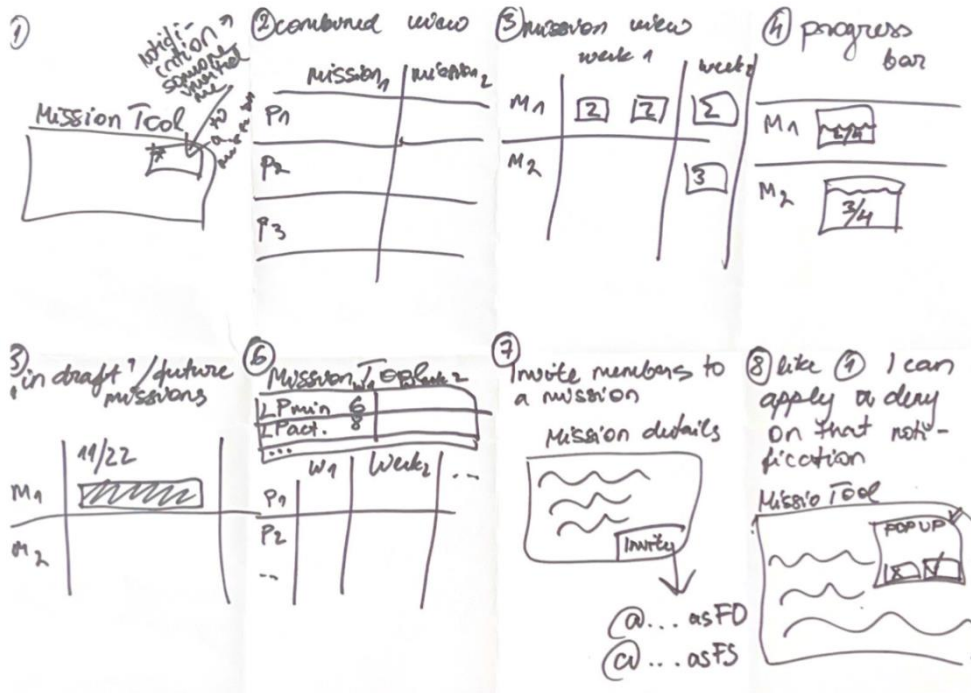 1
notifi-
cation
someone
invited
me
Mission Tool
2 combined view
mission1 mission2
P1
P2
P3
3 mission view
week 1 week2
M1 2 2 2
M2 3
4 progress
bar
M1 2/4
M2 3/4
"in draft"/future
missions
11/22
M1
M2
6
Mission Tool
W1 Week2
LPmin 6
LPact. 8
...
W1 Week2 ...
P1
P2
...
7
Invite members to
a mission
Mission details
Invite
@... as FO
@... as FS
8 like 1 I can
apply or deny
on that noti-
fication
Missio Tool
POP UP
X